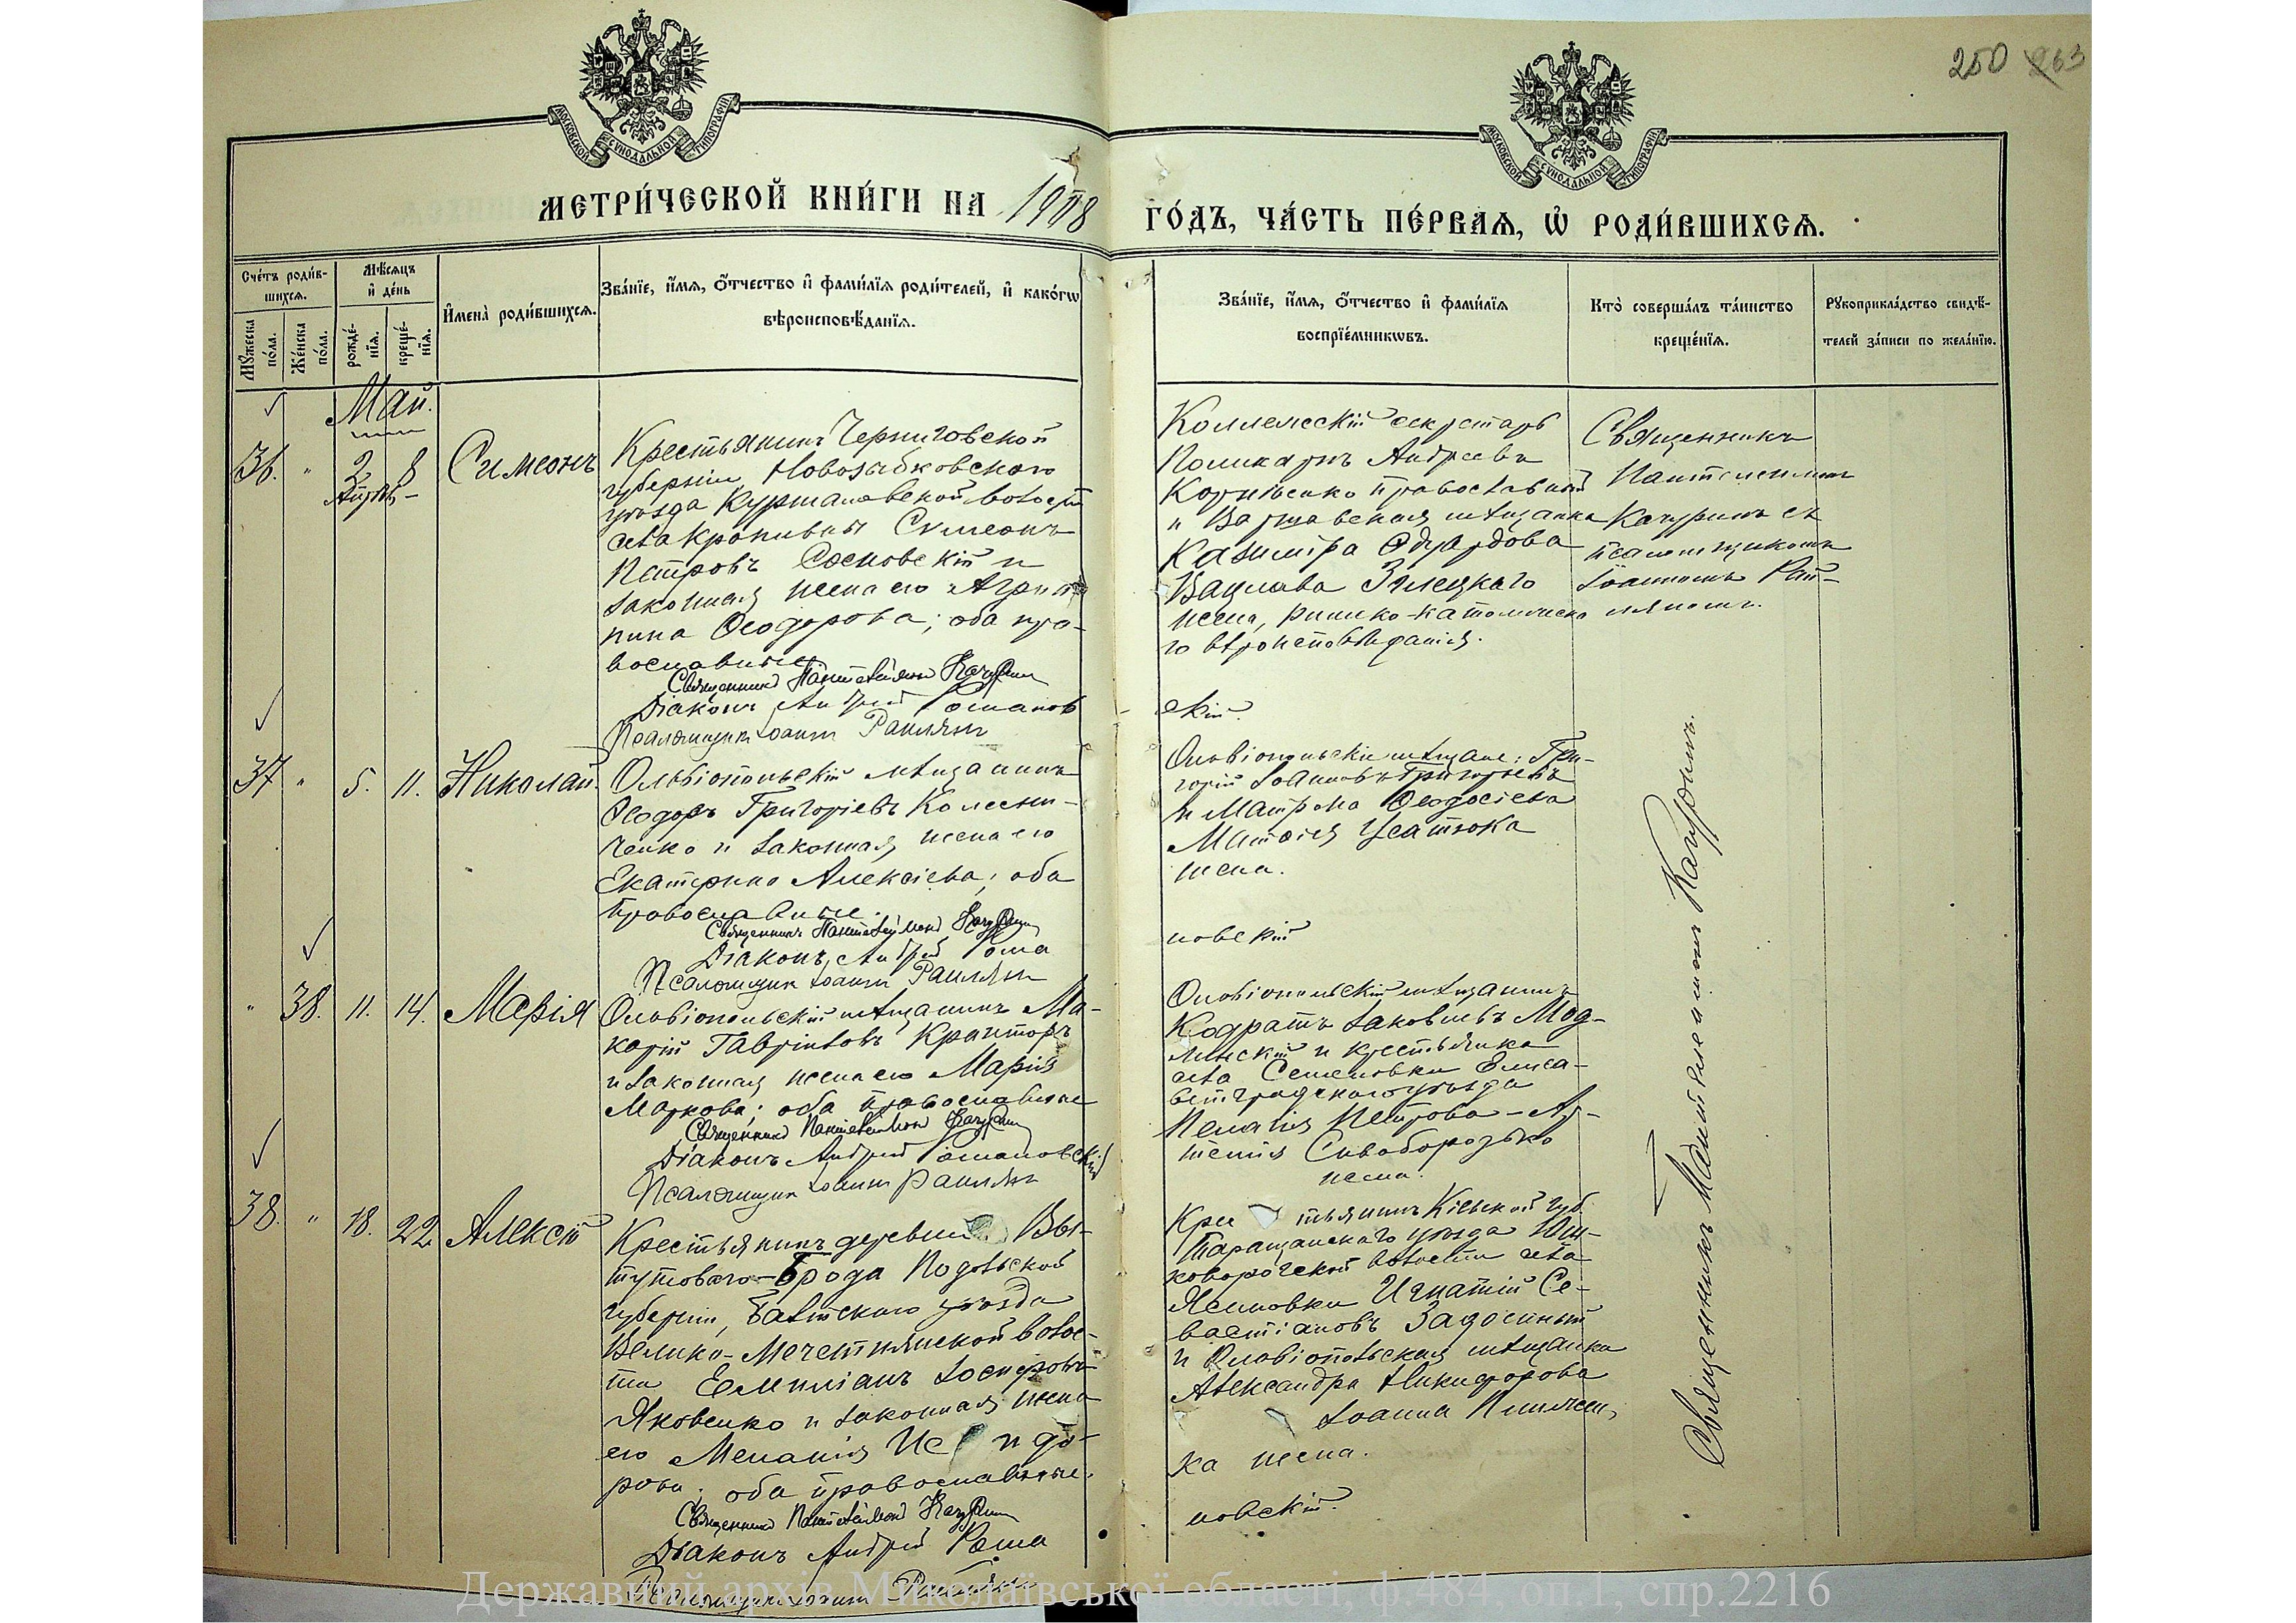 250 263
МОСКОВСКОЙ СУНОДАЛЬНОЙ ТИПОГРАФІИ
МОСКОВСКОЙ СУНОДАЛЬНОЙ ТИПОГРАФІИ
МЕТРИ́ЧЕСКОЙ КНИ́ГИ НА 1908 ГО́ДЪ, ЧА́СТЬ ПЕ́РВАѦ, Ѡ҆ РОДИ́ВШИХСѦ.
Сче́тъ роди́в-
шихсѧ.
Мꙋ́жеска по́ла.
Же́нска по́ла.
Мѣ́сѧцъ
и҆ де́нь
рожде́-
нїѧ.
креще́-
нїѧ.
И҆мена̀ роди́вшихсѧ.
Зва́нїе, и҆́мѧ, ѻ҆́тчество и҆ фами́лїѧ роди́телей, и҆ како́гѡ
вѣроисповѣ́данїѧ.
Зва́нїе, и҆́мѧ, ѻ҆́тчество и҆ фами́лїѧ
воспрїе́мникѡвъ.
Кто̀ соверша́лъ та́инство
креще́нїѧ.
Рꙋкоприкла́дство свидѣ́-
телей за́писи по жела́нїю.
Май.
36. " 2 8 Симеонъ
Апрѣль –
Крестьянинъ Черниговской
губерніи, Новозыбковскаго
уѣзда Куршановской волости
села Крапивны Симеонъ
Петровъ Сосновскій и
законная жена его Агрип-
пина Ѳеодорова; оба пра-
вославные.
Священникъ Пантелеймонъ Качурин
Діаконъ Андрей Романов
Псаломщикъ Іоаннъ Раилянъ
Коллежскій секретарь
Поликарпъ Андреевъ
Корніенко православный
и Варшавская мѣщанка
Казиміра Эдуардова
Вацлава Зилецкаго
жена, римско-католическа
го вѣроисповѣданія.
скій.
Священникъ
Пантелеимонъ
Качуринъ съ
псаломщикомъ
Іоанномъ Раи-
ляномъ.
37 " 5. 11. Николай.
Ольвіопольскій мѣщанинъ
Ѳеодоръ Григоріевъ Колесни-
ченко и законная жена его
Екатерина Алексіева; оба
православные.
Священникъ Пантелеймонъ Качурин
Діаконъ Андрей Рома
Псаломщикъ Іоаннъ Раилянъ
Ольвіопольскіе мѣщане: Гри-
горій Іоанновъ Григорьевъ
и Матрона Ѳеодосіева
Матѳія Усатюка
жена.
новскій
" 38. 11. 14. Марія
Ольвіопольскій мѣщанинъ Ма-
карій Гавріиловъ Кранторъ
и законная жена его Марія
Маркова; оба православные
Священникъ Пантелеймонъ Качурин
Діаконъ Андрей Романовскій
Псаломщикъ Іоаннъ Раилянъ
Ольвіопольскій мѣщанинъ
Кодратъ Іаковлевъ Мод-
линскій и крестьянка
села Семеновки Елиса-
ветградскаго уѣзда
Пелагія Петрова – Ар-
темія Сивобородько
жена.
38. " 18. 22 Алексій
Крестьянинъ деревни Вы-
тутоваго-Брода Подольской
губерніи, Балтскаго уѣзда
Велико-Мечетнянской волос-
ти Емиліанъ Іосифовъ
Яковенко и законная жена
его Меланія Исидо-
рова; оба православные.
Священникъ Пантелеймонъ Качурин
Діаконъ Андрей Рома
Псаломщикъ Іоаннъ Раилянъ
Крестьянинъ Кіевской губ.
Таращанскаго уѣзда
волости села
Ясиновки Игнатій Се-
вастіановъ
и Ольвіопольская мѣщанка
Александра Никифорова
Іоанна
ка жена.
новскій.
Священникъ Пантелеимонъ Качуринъ.
Державний архів Миколаївської області, ф.484, оп.1, спр.2216